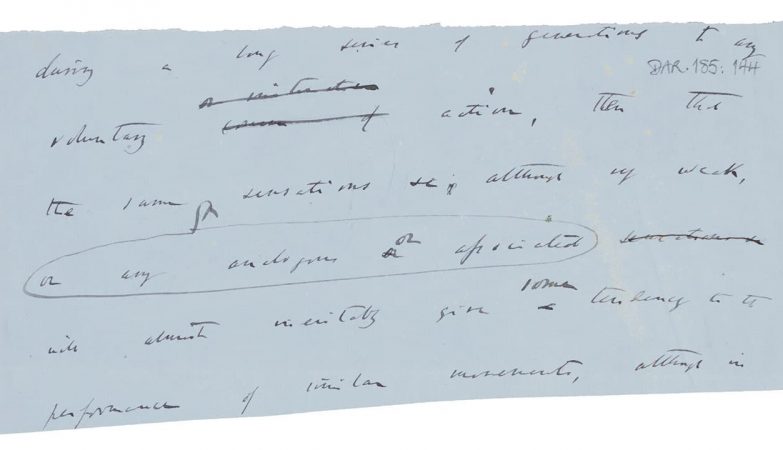 during a long series of generations to any
DAR.185:144
voluntary course of action, then the
the same sensations &c, although very weak,
or any analogous or associated sensations
will almost inevitably give some tendency to the
performance of similar movements, although in